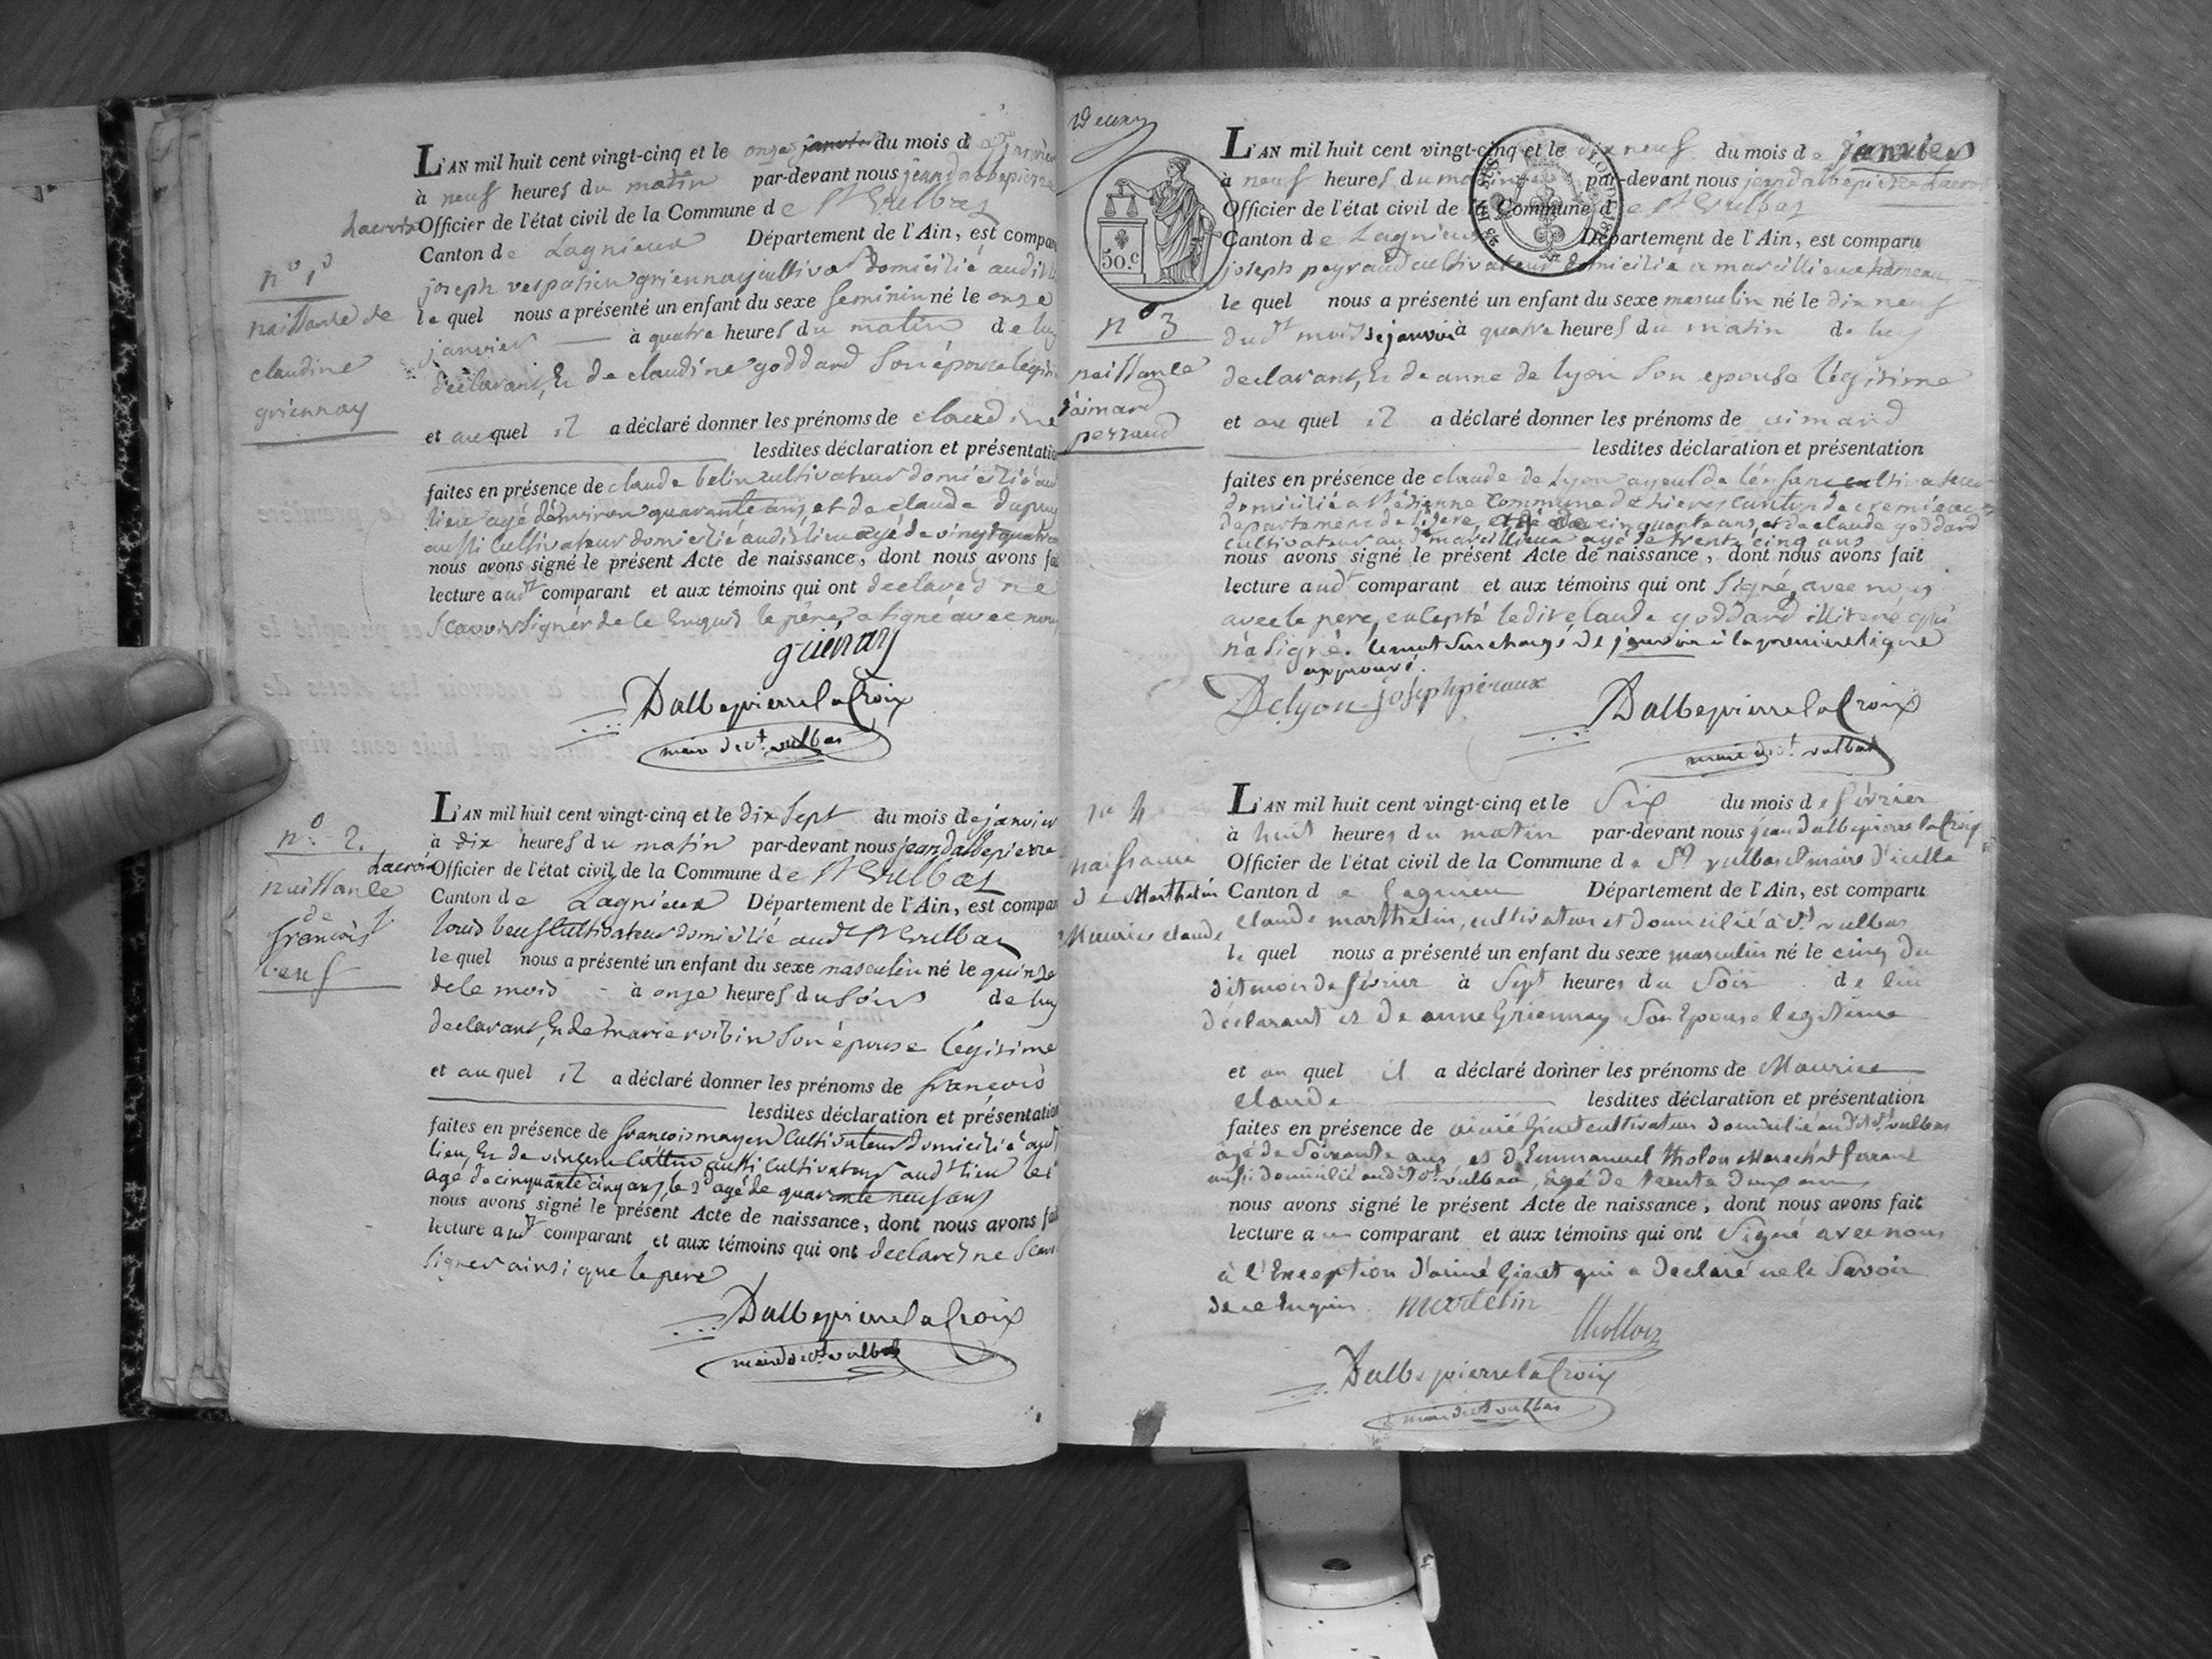 L'AN mil huit cent vingt-cinq et le onze janvier du mois de janvier
à neuf heures du matin par-devant nous jean dalbepierre
Lacroix Officier de l'état civil de la Commune de St Vulbas
Canton de Lagnieux Département de l'Ain, est comparu
joseph vespasien griennay cultivat domicilié audit
le quel nous a présenté un enfant du sexe feminin né le onze
janvier à quatre heures du matin de luy
déclarant, Et de claudine goddard son épouse légit
et au quel il a déclaré donner les prénoms de claudine
lesdites déclaration et présentation
faites en présence de claude belin cultivateur domicilié au
lieu agé d'environ quarante ans, et de claude dupuy
aussi cultivateur domicilié audit lieu agé de vingt quatre
nous avons signé le présent Acte de naissance, dont nous avons fai
lecture audt comparant et aux témoins qui ont declarés ne
scavoir signér de ce Enquis le père a signé avec nous
griénay
Dalbepierre la Croix
maire de st. vulbas
n° 1er
naissance de
claudine
griennay
L'AN mil huit cent vingt-cinq et le dix sept du mois de janvier
à dix heures du matin par-devant nous jean dalbepierre
Lacroix Officier de l'état civil de la Commune de St Vulbas
Canton de Lagnieux Département de l'Ain, est compar
louis beuf Cultivateur domicilié audt St Vulbas
le quel nous a présenté un enfant du sexe masculin né le quinze
de ce mois à onze heures du soir de luy
declarant, Et de marie roibin son épouse légitime
et au quel il a déclaré donner les prénoms de françois
lesdites déclaration et présentation
faites en présence de francois mayen Cultivateur domicilié audt
lieu, Et de vincent Cullin aussi Cultivateur audt lieu le 1er
agé de cinquante cinq ans, le 2e agé de quarante neuf ans
nous avons signé le présent Acte de naissance, dont nous avons fai
lecture audt comparant et aux témoins qui ont declarés ne scavoir
signer ainsi que le pere
Dalbepierre la Croix
maire de st vulbas
n° 2.
naissance
de
françois
beuf
Deuxy
50.c
L'AN mil huit cent vingt-cinq et le dix neuf du mois de janvier
à neuf heures du matin par-devant nous jean dalbepierre Lacroix
Officier de l'état civil de la Commune de St Vulbas
Canton de Lagnieux Département de l'Ain, est comparu
joseph peyraud cultivateur domicilié a marcillieux hameau
le quel nous a présenté un enfant du sexe masculin né le dix neuf
dudt mois de janvier à quatre heures du matin de luy
declarant, Et de anne de lyon son epouse légitime
et au quel il a déclaré donner les prénoms de aimard
lesdites déclaration et présentation
faites en présence de claude de Lyon ayeul de l'enfant cultivateur
domicilié a St étienne Commune d'hieres Canton de cremieux
departement de l'isere, agé de cinquante ans, et de claude goddard
cultivateur audt marcillieux agé de trente cinq ans
nous avons signé le présent Acte de naissance, dont nous avons fait
lecture audt comparant et aux témoins qui ont signé avec nous
avec le pere, excepté le dit claude goddard illiteré qui
n'a signé. le mot surchargé de janvier à la premiere ligne
approuvé.
Delyon joseph péraux
Dalbepierre la Croix
maire de st. vulbas
n° 3
naissance
d'aimard
perraud
L'AN mil huit cent vingt-cinq et le Six du mois de février
à huit heures du matin par-devant nous jean dalbepierre la Croix
Officier de l'état civil de la Commune de St vulbas et maire d'icelle
Canton de Lagnieu Département de l'Ain, est comparu
claude marthelin, cultivateur et domicilié à St. vulbas
le quel nous a présenté un enfant du sexe masculin né le cinq du
dit mois de février à sept heures du soir de lui
déclarant et de anne Griennay son Epouse legitime
et au quel il a déclaré donner les prénoms de Maurice
claude lesdites déclaration et présentation
faites en présence de aimé Giret cultivateur domicilié audit St. vulbas
agé de Soixante ans et d'Emmanuel tholon Marechal ferrant
aussi domicilié audit St. vulbas, agé de trente deux ans
nous avons signé le présent Acte de naissance, dont nous avons fait
lecture au comparant et aux témoins qui ont Signé avec nous
à l'Exception d'aimé Giret qui a Declaré ne le Savoir
de ce Enquis. martelin
thollon
Dalbepierre la Croix
maire de st vulbas
n° 4
naissance
de Marthelin
Maurice claude